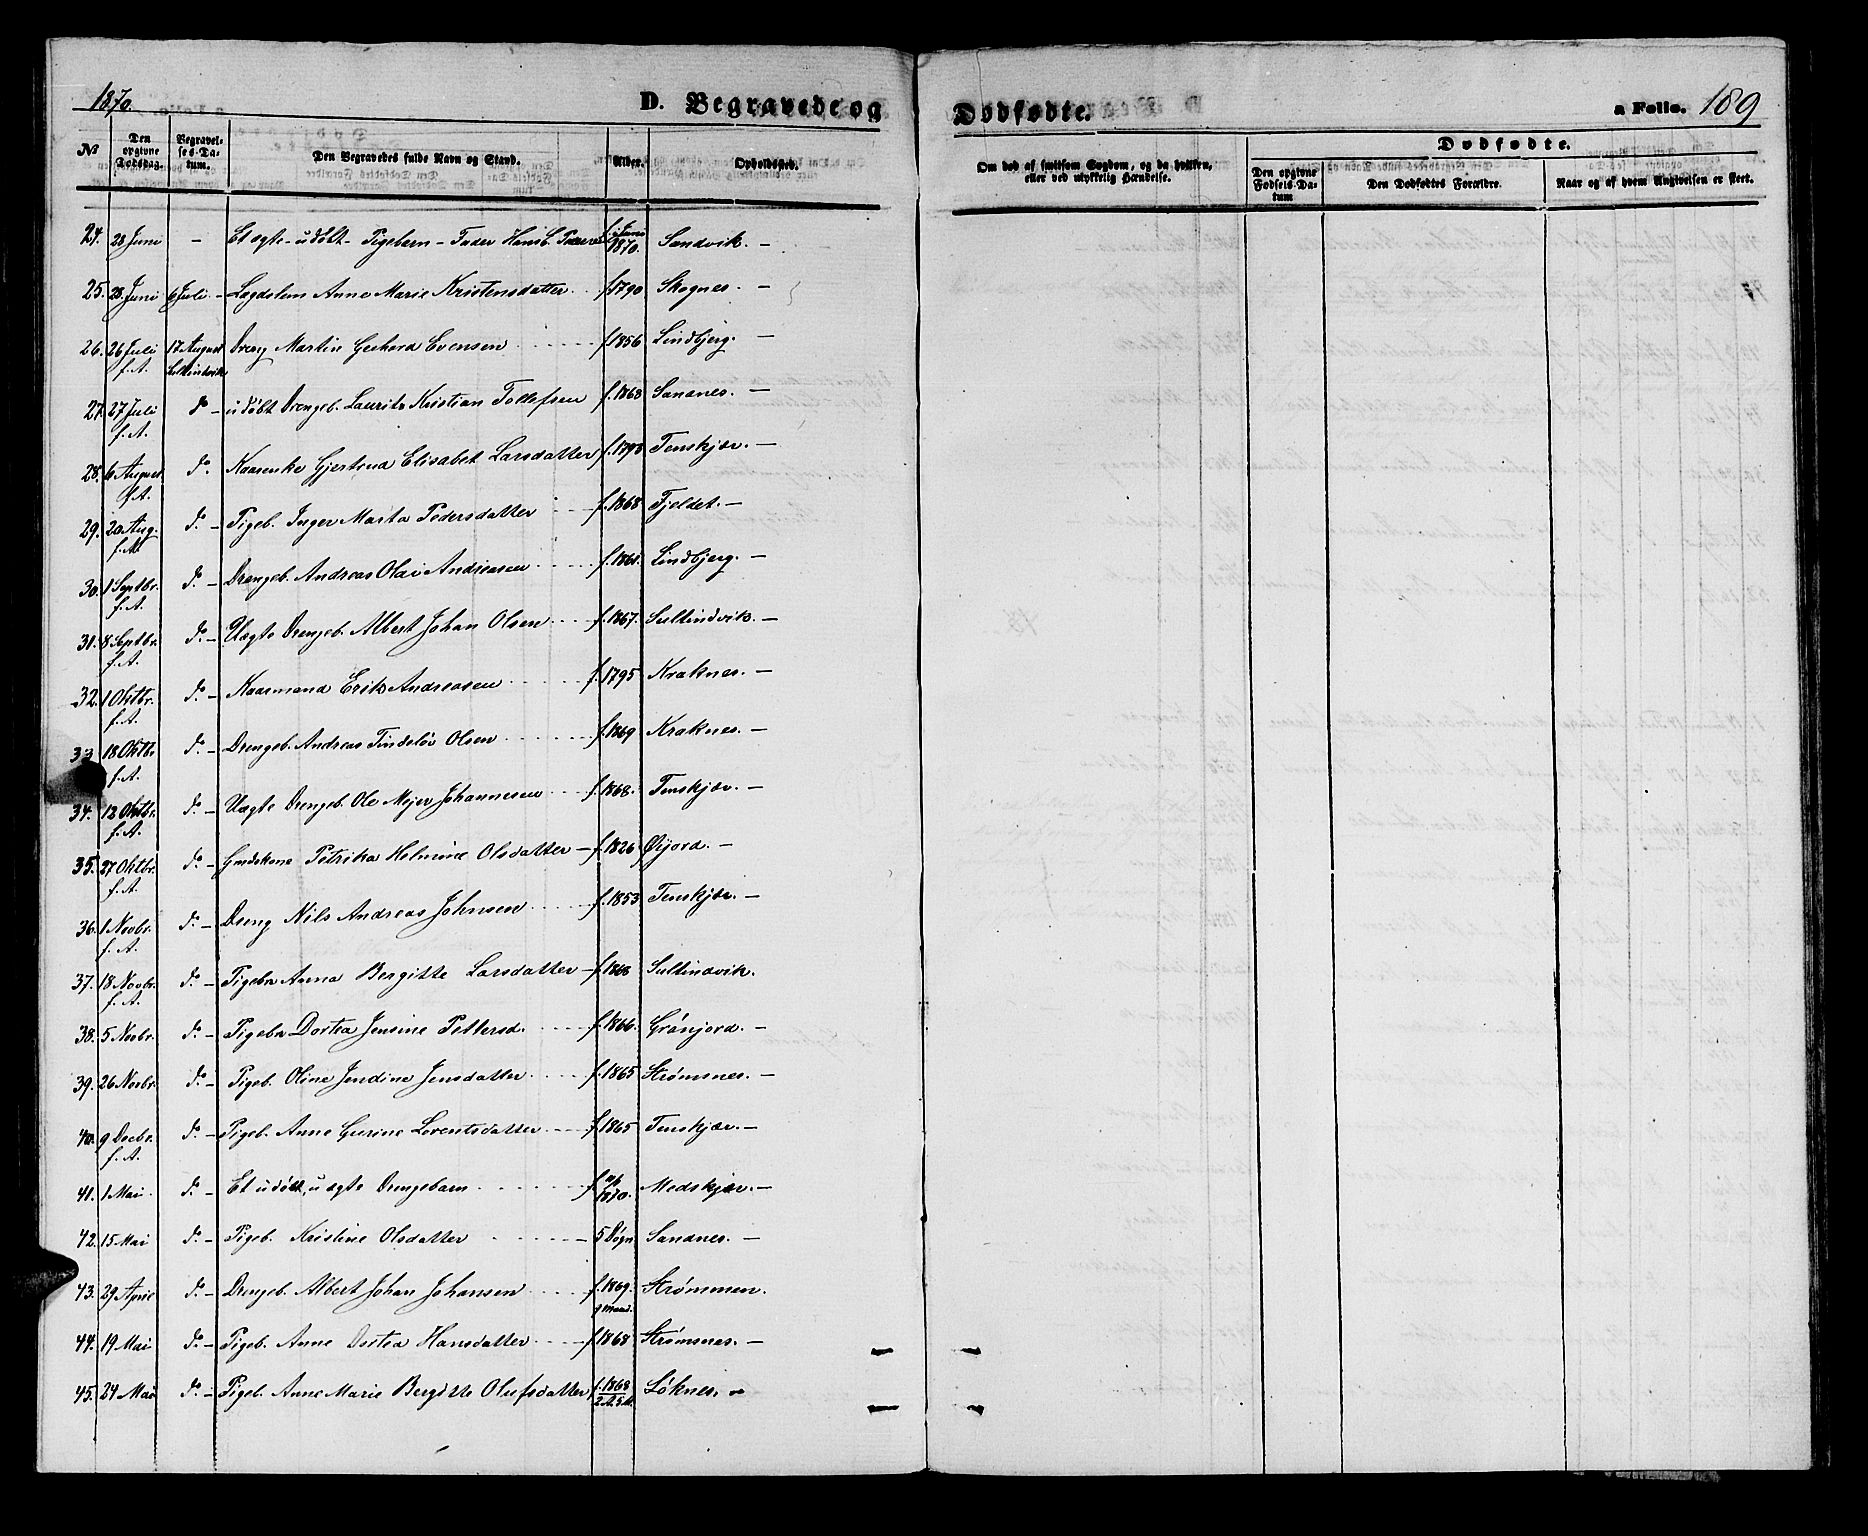 1870.
D. Begravede og
Dødfødte.
a Folio. 189
No
Den opgivne Dødsdag.
Begravelses-Datum.
Den Begravedes fulde Navn og Stand.
Alder.
Opholdssted.
Om død af smitsom Sygdom, og da hvilken, eller ved ulykkelig Hændelse.
Dødfødte.
Den opgivne Fødsels-Datum
Den Dødfødtes Forældre.
Naar og af hvem Angivelsen er skeet.
24. 28 Juni - Et ægte - udøbt - Pigebarn - Fader Hans f. Juni 1870. Sandvik. -
25. 28. Juni 6 Juli. - Lægdslem Anne Marie Kristensdatter f. 1790 Skognes. -
26. 26 Juli f. A. 17 August Sultindvik Dreng Martin Gerhard Evensen f. 1856 Lindbjerg. -
27. 27 Juli f. A. do - udøbt Drengeb. Laurits Kristian Tollefsen f. 1868 Sandnes. -
28. 6 August f. A. do. Kaarenke Gjertrud Elisabet Larsdatter f. 1793 Tenskjær. -
29. 20 Aug. f. A. do. - Pigeb. Inger Marta Pedersdatter f. 1868 Fjeldet. -
30. 1 Septbr. f. A. do. - Drengeb. Andreas Olai Andreasen f. 1861. Lindbjerg. -
31. 8 Septbr. f. A. do. - Uægte Drengeb. Albert Johan Olsen f. 1867. Sultindvik. -
32. 1 Oktbr. f. A. do. - Kaarmand Erik Andreasen f. 1795 Kraknes. -
33 18 Oktbr. f. A. do. - Drengeb. Andreas Tindeløv Olsen f. 1869 Kraknes. -
34. 12 Oktbr. f. A. do. - Uægte Drengeb. Ole Mejer Johannesen f. 1868. Tenskjær. -
35. 27 Oktbr. f. A. do. - Gmdskone Petrika Helmine Olsdatter - f. 1826 Øijord. -
36. 1 Novbr. f. A. do. - Dreng Nils Andreas Johnsen f. 1853 Tenskjær. -
37. 18 Novbr. f. A. do. - Pigebn Anna Bergitte Larsdatter - f. 1868 Sultindvik.
38. 5 Novbr. do. - Pigebn Dortea Jensine Pettersd. f. 1866. Grønjord. -
39. 26 Novbr. do. - Pigeb. Oline Jendine Jensdatter f. 1865 Strømsnes. -
40. 9 Decbr. f. A. do. - Pigeb. Anne Gurine Lorentsdatter f. 1865 Tenskjær. -
41. 1 Mai. do. - Et udøbt, uægte Drengebarn f. 1870. Medskjær. -
42. 15 Mai do. - Pigeb. Kristine Olsdatter - 5 Døgn Sandnes. -
43. 29 April do. - Drengeb. Albert Johan Johansen f. 1869. 9 Maan. Strømmen.
44. 19 Mai do. - Pigeb. Anne Dortea Hansdatter f. 1868 Strømsnes. -
45. 24 Mai do. - Pigeb. Anne Marie Bergitte Olufsdatter f. 1868 2 A. 5 M. Løknes. -